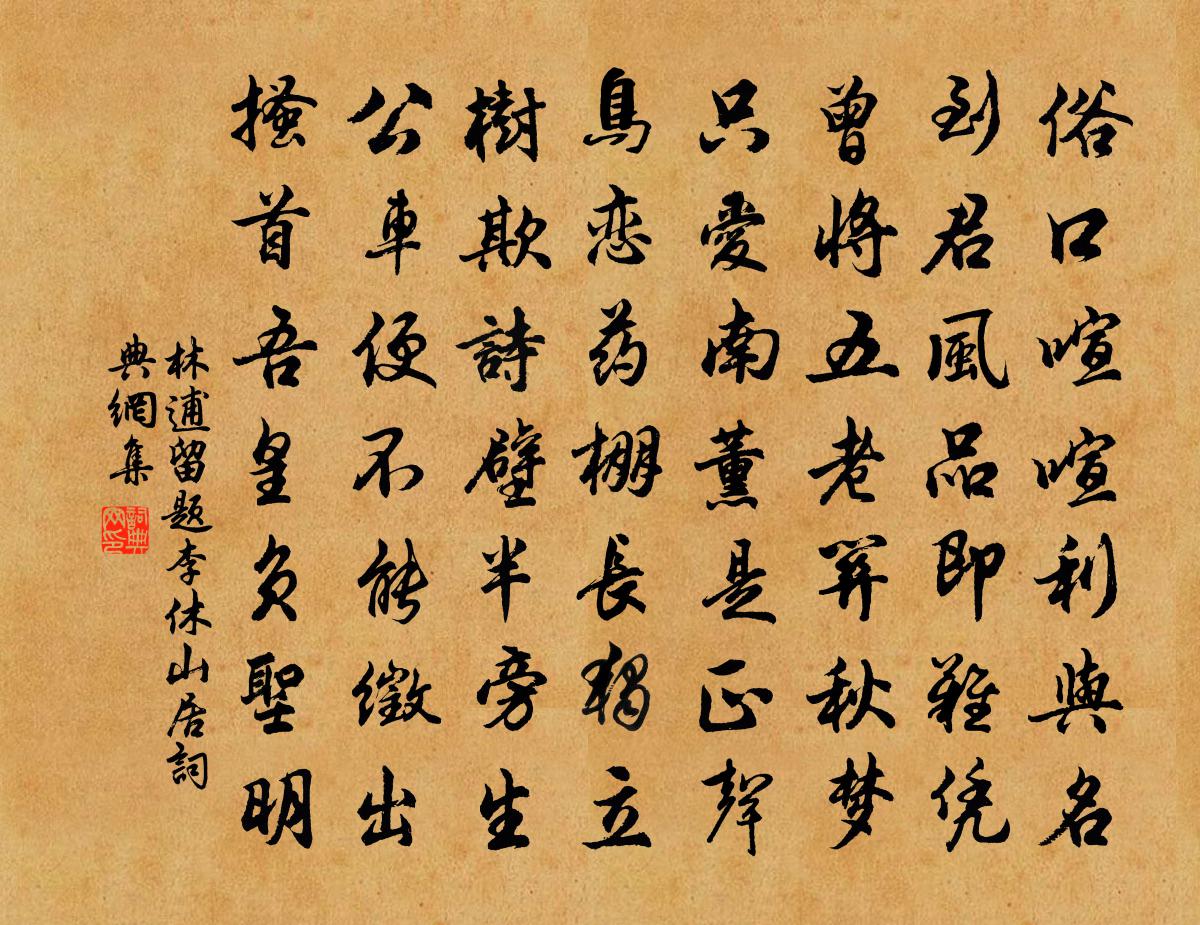 俗口喧喧利與名
到君風品即難凭
曾將五老關秋梦
只愛南薰是正聲
鳥恋药棚長獨立
樹欺詩壁半旁生
公車便不能徵出
搔首吾皇負聖明
林逋留題李休山居詞
典網集